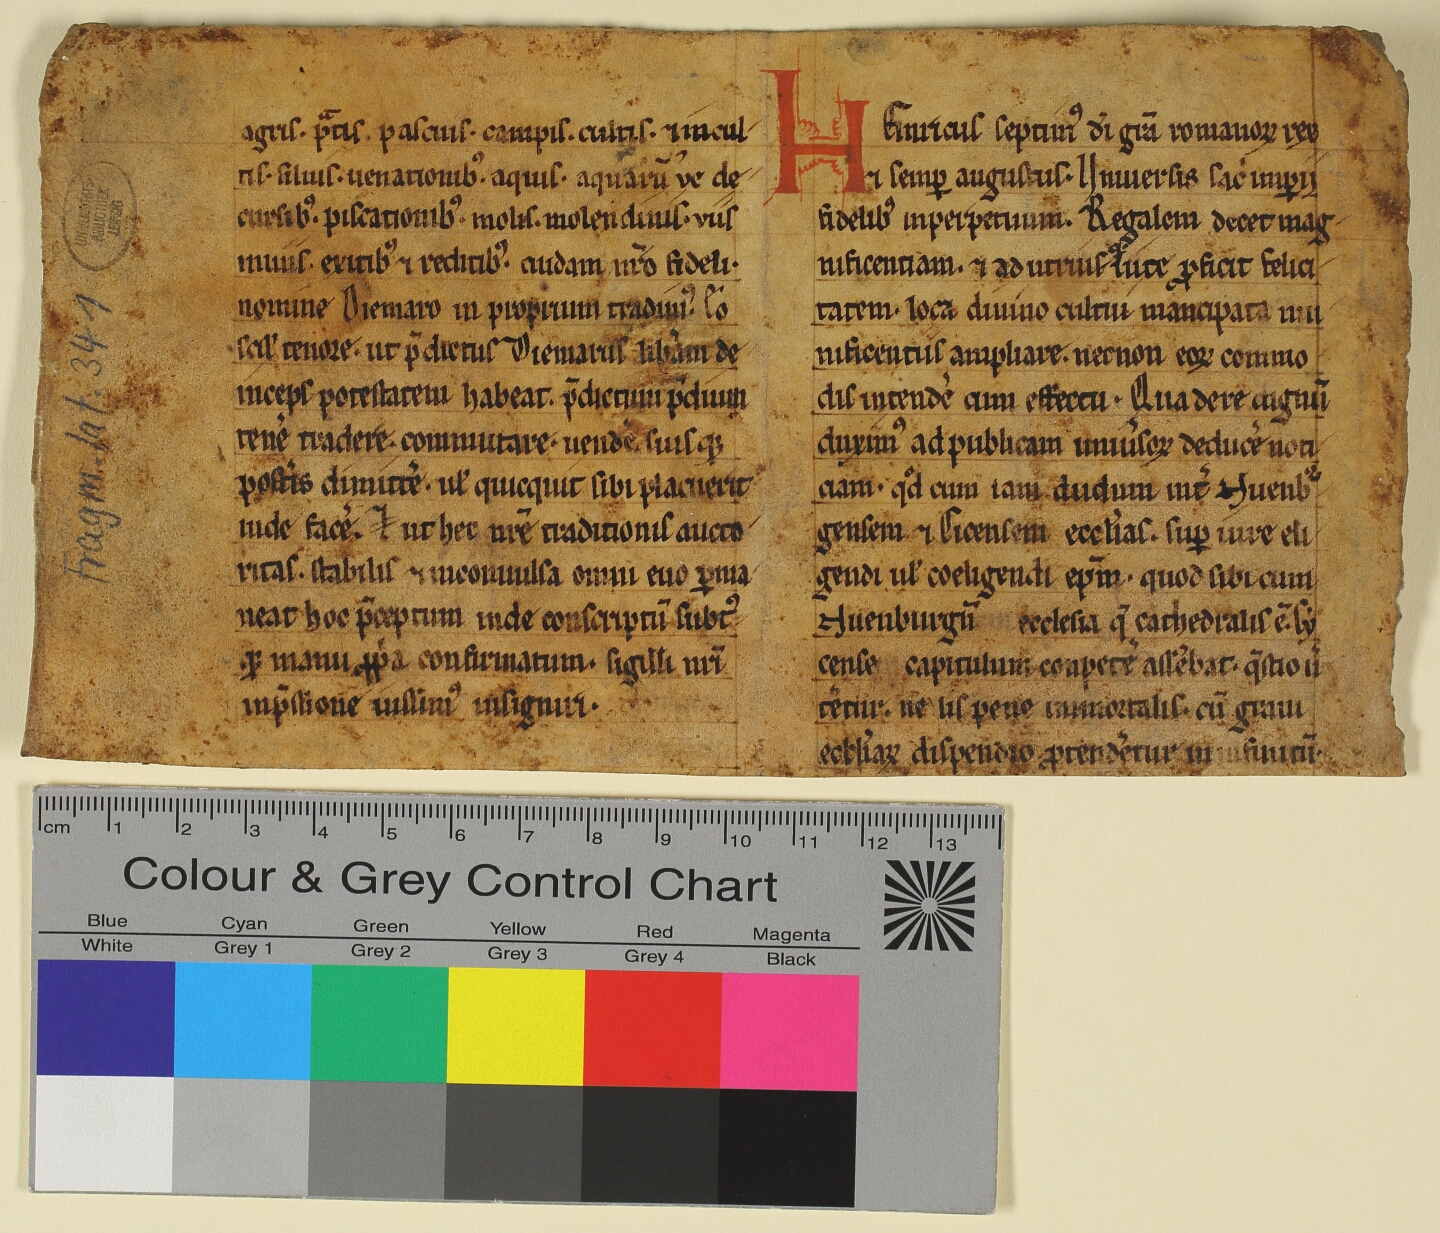 agris· p̄tis· pascuis· campis· cultis· ⁊ incul
tis· siluis· uenationib⁹· aquis· aquarū ve de
cursib⁹· piscationib⁹· molis· molendinis· viis
inuiis· exitib⁹ ⁊ reditib⁹· cuidam nr̄o fideli·
nomine Diemaro in proprium tradim⁹· Eo
scil' tenore· ut p̄dictus Diemarus lib̄am de
inceps potestatem habeat· p̄dictum p̄dium
tenē tradere· commutare· uendē· suisqꝫ
post̄is dimittē· ul' quicquit sibi placuerit
inde facē· Et ut hec nr̄e traditionis aucto
ritas· stabilis ⁊ inconuulsa omni euo ꝑma
neat hoc p̄ceptum inde conscriptū subt⁹
qꝫ manu ꝓpa confirmatum· sigilli nr̄i
inp̄ssione iussim⁹ insigniri·
HEinricus septim⁹ dī grā romanoꝝ rex
et semꝑ augustus· Vniuersis sac̄ imperii
fidelib⁹ inperpetuum· Regalem decet mag
nificentiam· ⁊ ad utriusqꝫ uite ꝓficit felici
tatem· loca diuino cultui mancipata mu
nificentius ampliare· necnon eoꝝ commo
dis intendē cum effectu· Qua de re dignū
duxim⁹ ad publicam uniu̅soꝝ deducē noti
ciam· qd̄ cum iam dudum int̄ Niuenb̄
gensem ⁊ Cicensem eccl'ias· suꝑ iure eli
gendi ul' coeligendi ep̄m· quod sibi cum
Nuenburgn̄ ecclesia q̄ cathedralis ē· Cy
cense capitulum conpetē assēbat· q̄stio ū
tēt̄ur· ne lis pene inmortalis· cū graui
eccl'iaꝝ dispendio ꝓtendēt̄ur in infinitū·
Fragm. lat. 34 1
UNIVERSITÄTS
BIBLIOTHEK
LEIPZIG
cm 1 2 3 4 5 6 7 8 9 10 11 12 13
Colour & Grey Control Chart
Blue Cyan Green Yellow Red Magenta
White Grey 1 Grey 2 Grey 3 Grey 4 Black